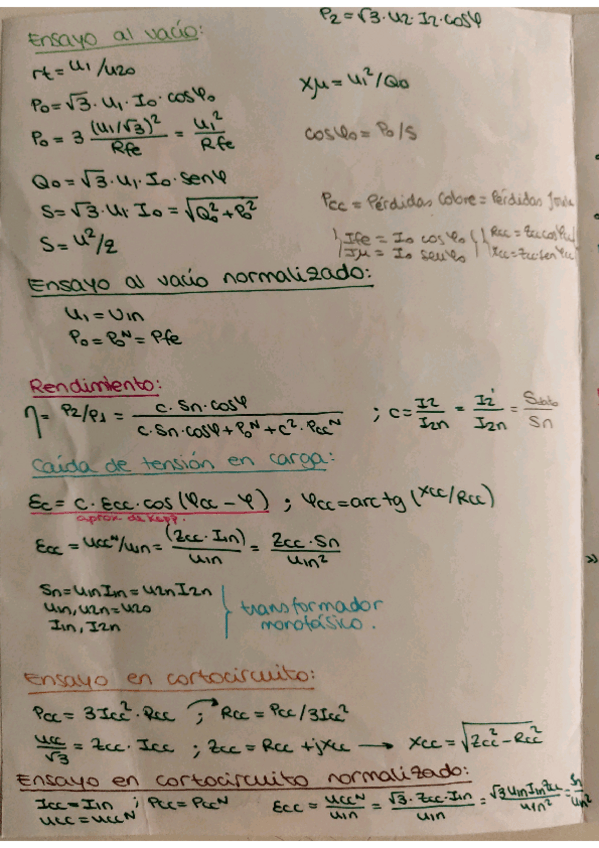 P₂=√3·U₂·I₂·cosφ
Ensayo al vacío:
rt=U₁/U₂₀
P₀=√3·U₁·I₀·cosφ₀
Xμ=U₁²/Q₀
P₀=3 (U₁/√3)²/Rfe = U₁²/Rfe
cosφ₀=P₀/S
Q₀=√3·U₁·I₀·senφ
S=√3·U₁·I₀=√(Q₀²+P₀²)
Pcc=Pérdidas Cobre=Pérdidas Joule
S=U²/Z
Ife=I₀ cosφ₀ Rcc=Zcc cosφcc
Iμ=I₀ senφ₀ Xcc=Zcc senφcc
Ensayo al vacío normalizado:
U₁=U₁n
P₀=P₀ᴺ=Pfe
Rendimiento:
η=P₂/P₁= c·Sn·cosφ/(c·Sn·cosφ+P₀ᴺ+c²·Pccᴺ) ; c=I₂/I₂n = I₂'/I₂n =/Sn
Caída de tensión en carga:
Ec=c·Ecc·cos(φcc-φ) ; φcc=arctg(Xcc/Rcc)
aprox. de Kapp.
Ecc=Uccᴺ/U₁n=(Zcc·I₁n)/U₁n=Zcc·Sn/U₁n²
Sn=U₁nI₁n=U₂nI₂n
U₁n,U₂n=U₂₀
I₁n,I₂n
transformador
monofásico.
Ensayo en cortocircuito:
Pcc=3Icc²·Rcc ; Rcc=Pcc/3Icc²
Ucc/√3=Zcc·Icc ; Zcc=Rcc+jXcc → Xcc=√(Zcc²-Rcc²)
Ensayo en cortocircuito normalizado:
Icc=I₁n ; Pcc=Pccᴺ Ecc=Uccᴺ/U₁n=√3·Zcc·I₁n/U₁n=√3U₁nI₁nZcc/U₁n²=Sn/U₁n²
Ucc=Uccᴺ